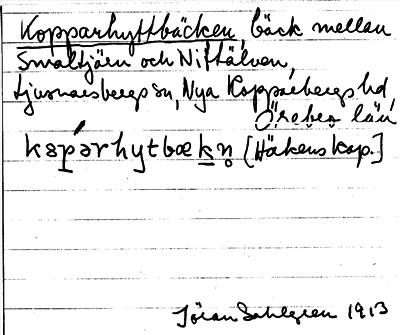 Kopparhyttbäcken, bäck mellan
Smaltjärn och Niftälven,
Ljusnarsbergs sn, Nya Kopparbergs hd,
Örebro län
[Håkens kap.]
Jöran Sahlgren 1913